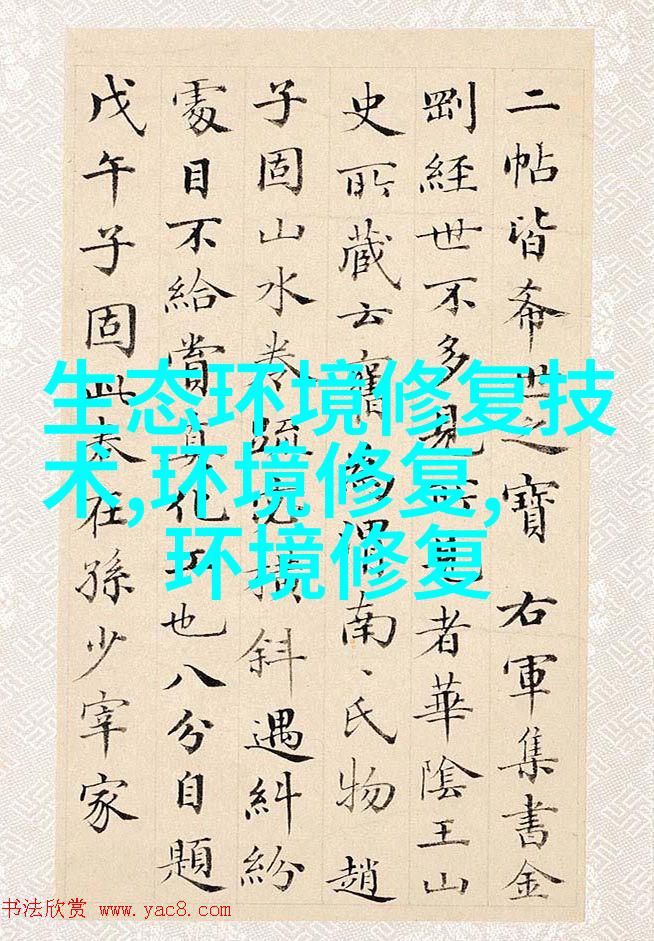 二帖皆希世之寶 右軍集書金
剛經世不多見所見者華陰王山
史所藏云舊為南、氏物趙
子固山水卷橫斜遇糾紛
處目不給賞真化工也八分自題
戊午子固此卷在孫少宰家
生态环境修复技
术,环境修复,
环境修复
书法欣赏 www.yac8.com